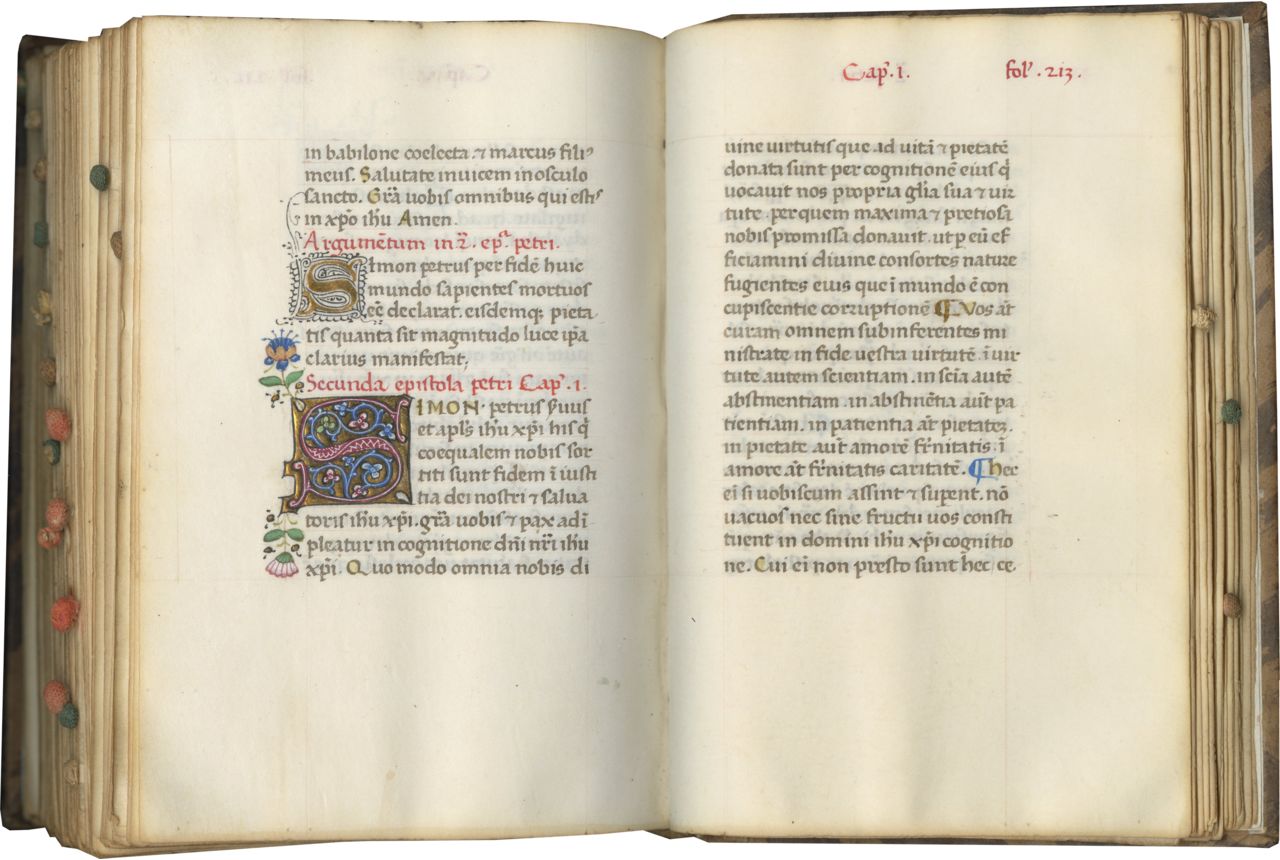 in babilone coelecta ⁊ marcus filiꝰ
meus. Salutate inuicem in osculo
sancto. Gr̄a uobis omnibus qui estiſ
in xp̄o ih̄u Amen.
Argumētum in 2ᵃ. ep̄ᵃ petri.
SImon petrus per fidē huic
mundo sapientes mortuos
eē declarat. eisdemqꝫ pieta
tis quanta sit magnitudo luce ip̄a
clarius manifestat;
Secunda epistola petri Cap̄. 1.
SIMON petrus s̄uus
et apl̄s ih̄u xp̄i his q̄
coequalem nobis sor
titi sunt fidem ī iusti
tia dei nostri ⁊ salua
toris ih̄u xp̄i. gr̄a uobis ⁊ pax ad ī
pleatur in cognitione dn̄i nr̄i ih̄u
xp̄i. Quo modo omnia nobis di
Cap̄. 1. fol̄. 213.
uine uirtutis que ad uitā ⁊ pietatē
donata sunt per cognitionē eius q̄
uocauit nos propria gl̄ia sua ⁊ uir
tute. per quem maxima ⁊ pretiosa
nobis promissa donauit. ut p̱ eū ef
ficiamini diuine consortes nature
fugientes eius que ī mundo ē con
cupiscentie corruptionē ¶ Vos āt
curam omnem subinferentes mi
nistrate in fide uestra uirtutē. ī uir
tute autem scientiam. in scīa autē
abstinentiam. in abstinētia aūt pa
tientiam. in patientia āt pietatēꝫ.
in pietate aūt amorē fr̄nitatis. ī
amore āt fr̄nitatis caritatē. ¶ hec
ei si uobiscum assint ⁊ supent. nō
uacuos nec sine fructu uos consti
tuent in domini ih̄u xp̄i cognitio
ne. Cui eī non presto sunt hec ce